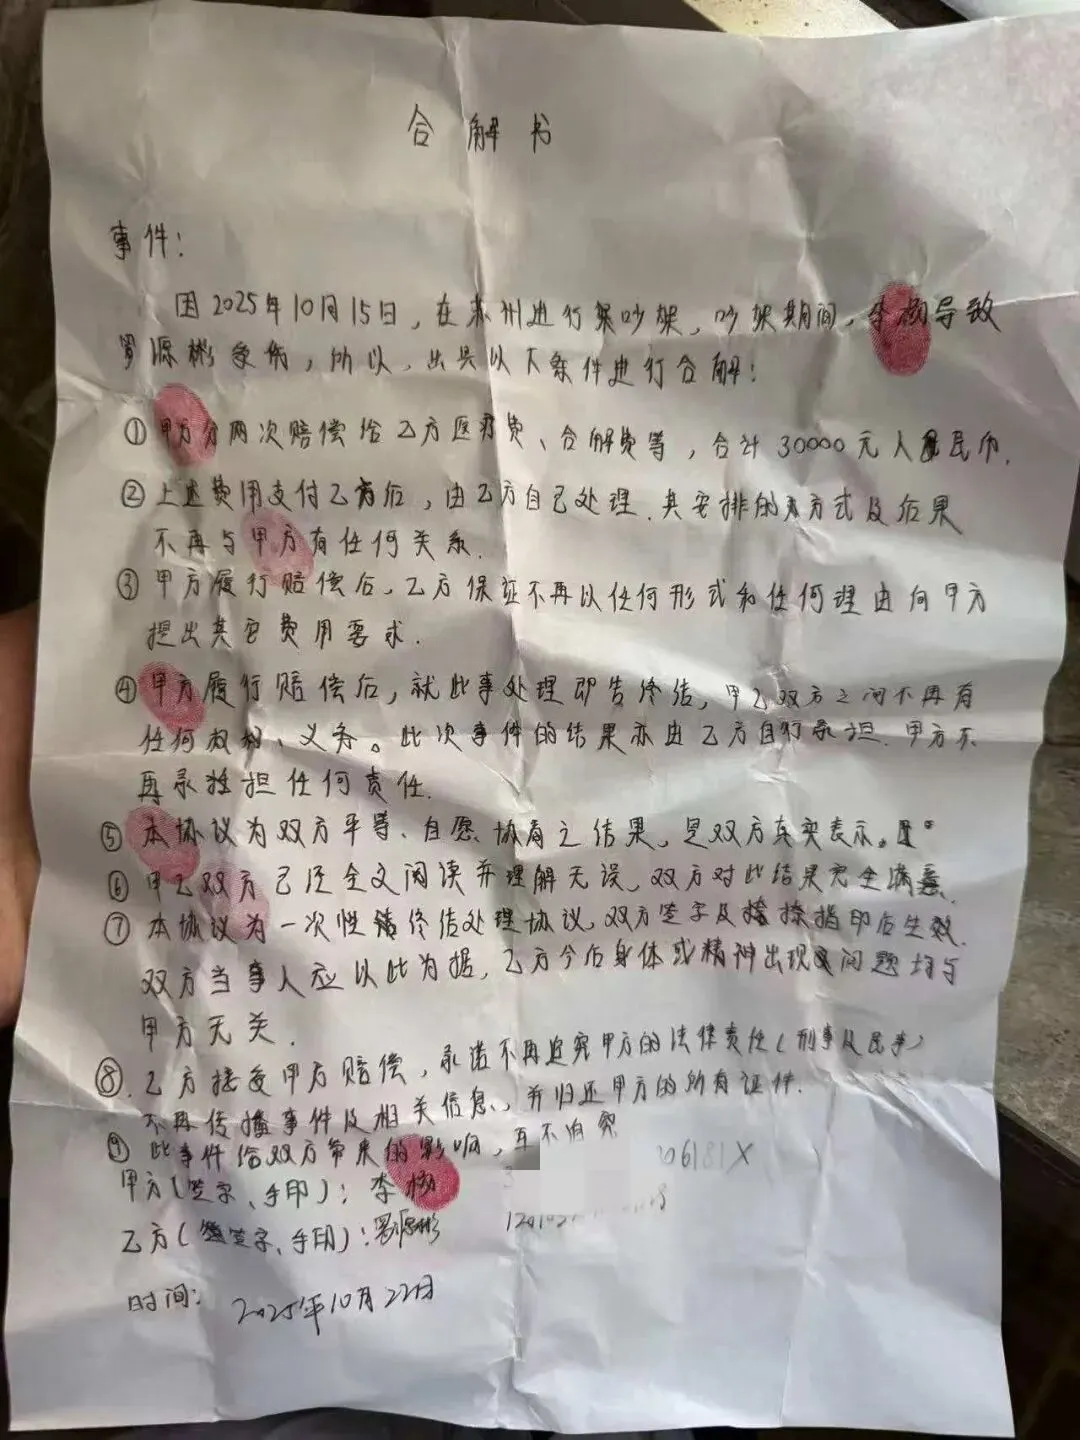 合解书
事件：
因2025年10月15日，在苏州进行架吵架，吵架期间，李杨导致
罗源彬受伤，所以，出具以下条件进行合解：
①甲方分两次赔偿给乙方医疗费、合解费等，合计30000元人民币.
②上述费用支付乙方后，由乙方自己处理.其安排的方式及后果
不再与甲方有任何关系.
③甲方履行赔偿后，乙方保证不再以任何形式和任何理由向甲方
提出其它费用要求.
④甲方履行赔偿后，就此事处理即告终结，甲乙双方之间不再有
任何权利、义务。此次事件的结果亦由乙方自行承担.甲方不
再承担任何责任.
⑤本协议为双方平等、自愿协商之结果，是双方真实表示。
⑥甲乙双方已还全文阅读并理解无误，双方对此结果完全满意.
⑦本协议为一次性终结处理协议，双方签字及捺指印后生效.
双方当事人应以此为据，乙方今后身体或精神出现问题均与
甲方无关.
⑧.乙方接受甲方赔偿，承诺不再追究甲方的法律责任（刑事及民事）
不再传播事件及相关信息，并归还甲方的所有证件.
⑨此事件给双方带来的影响，互不追究
06181X
甲方（签字、手印）：李杨
乙方（签字、手印）：罗源彬
时间：2025年10月22日